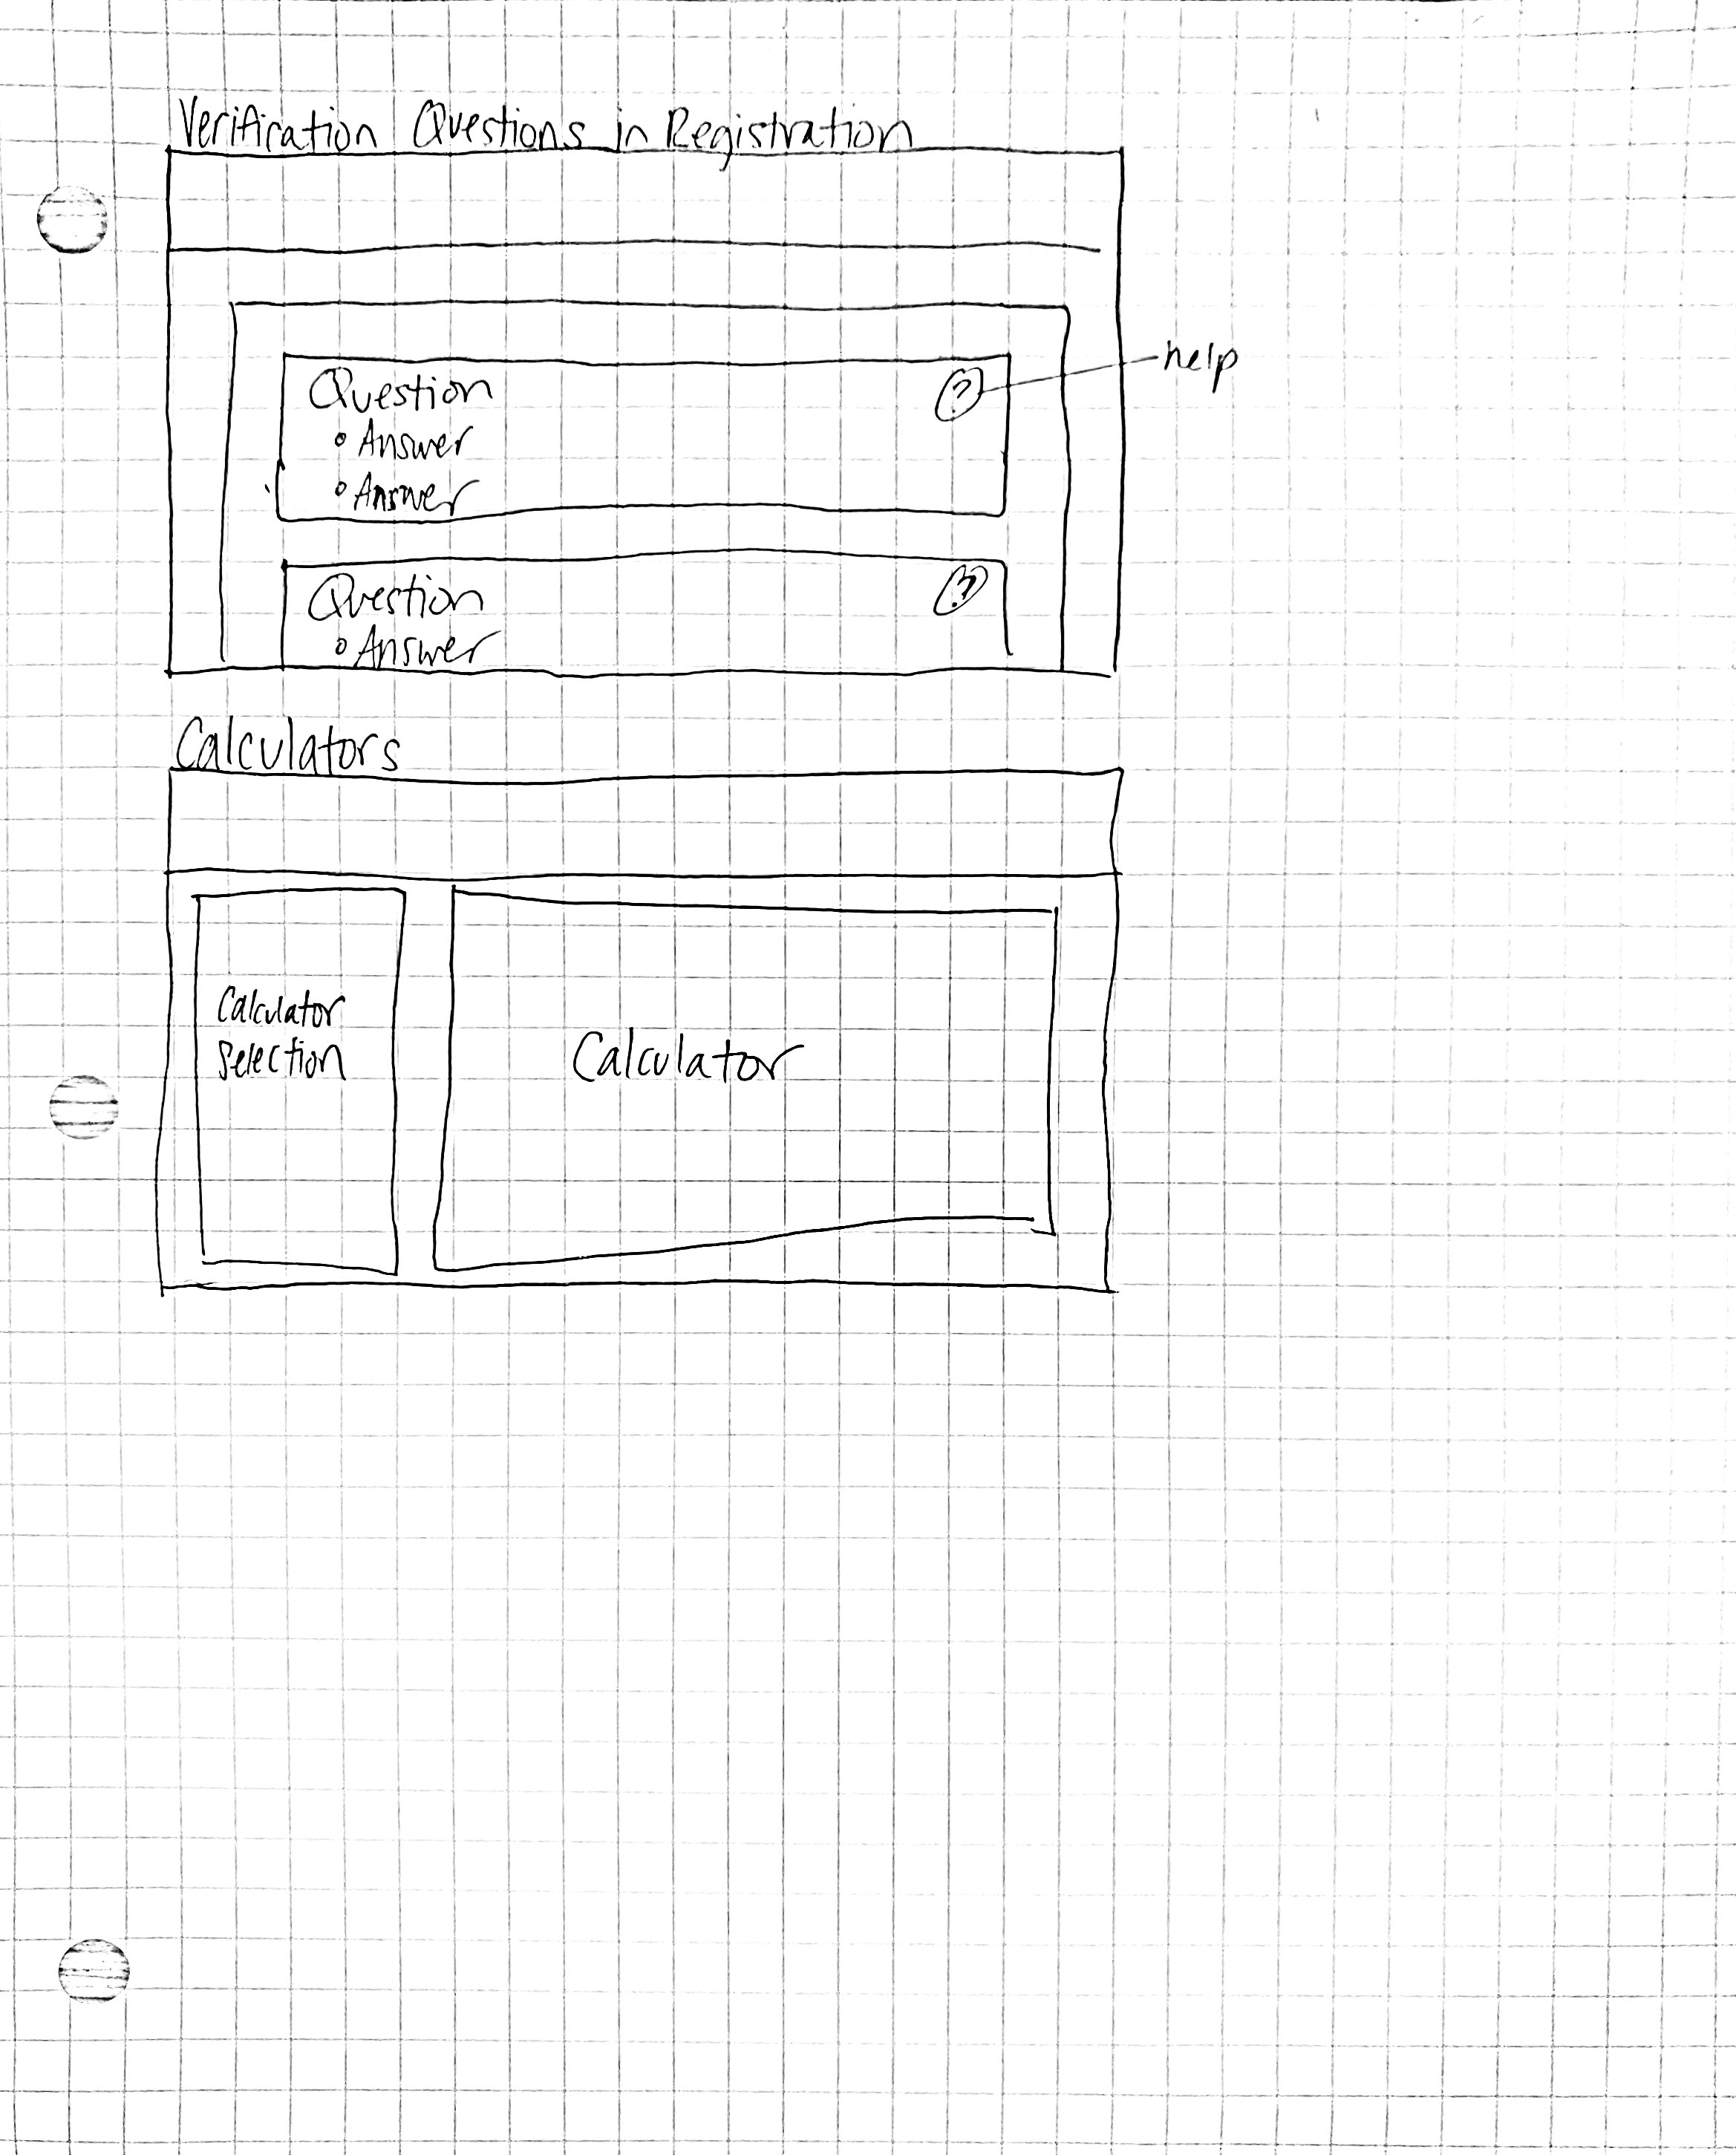 Verification Questions in Registration
Question
? help
• Answer
• Answer
Question
?
• Answer
Calculators
Calculator
Selection
Calculator